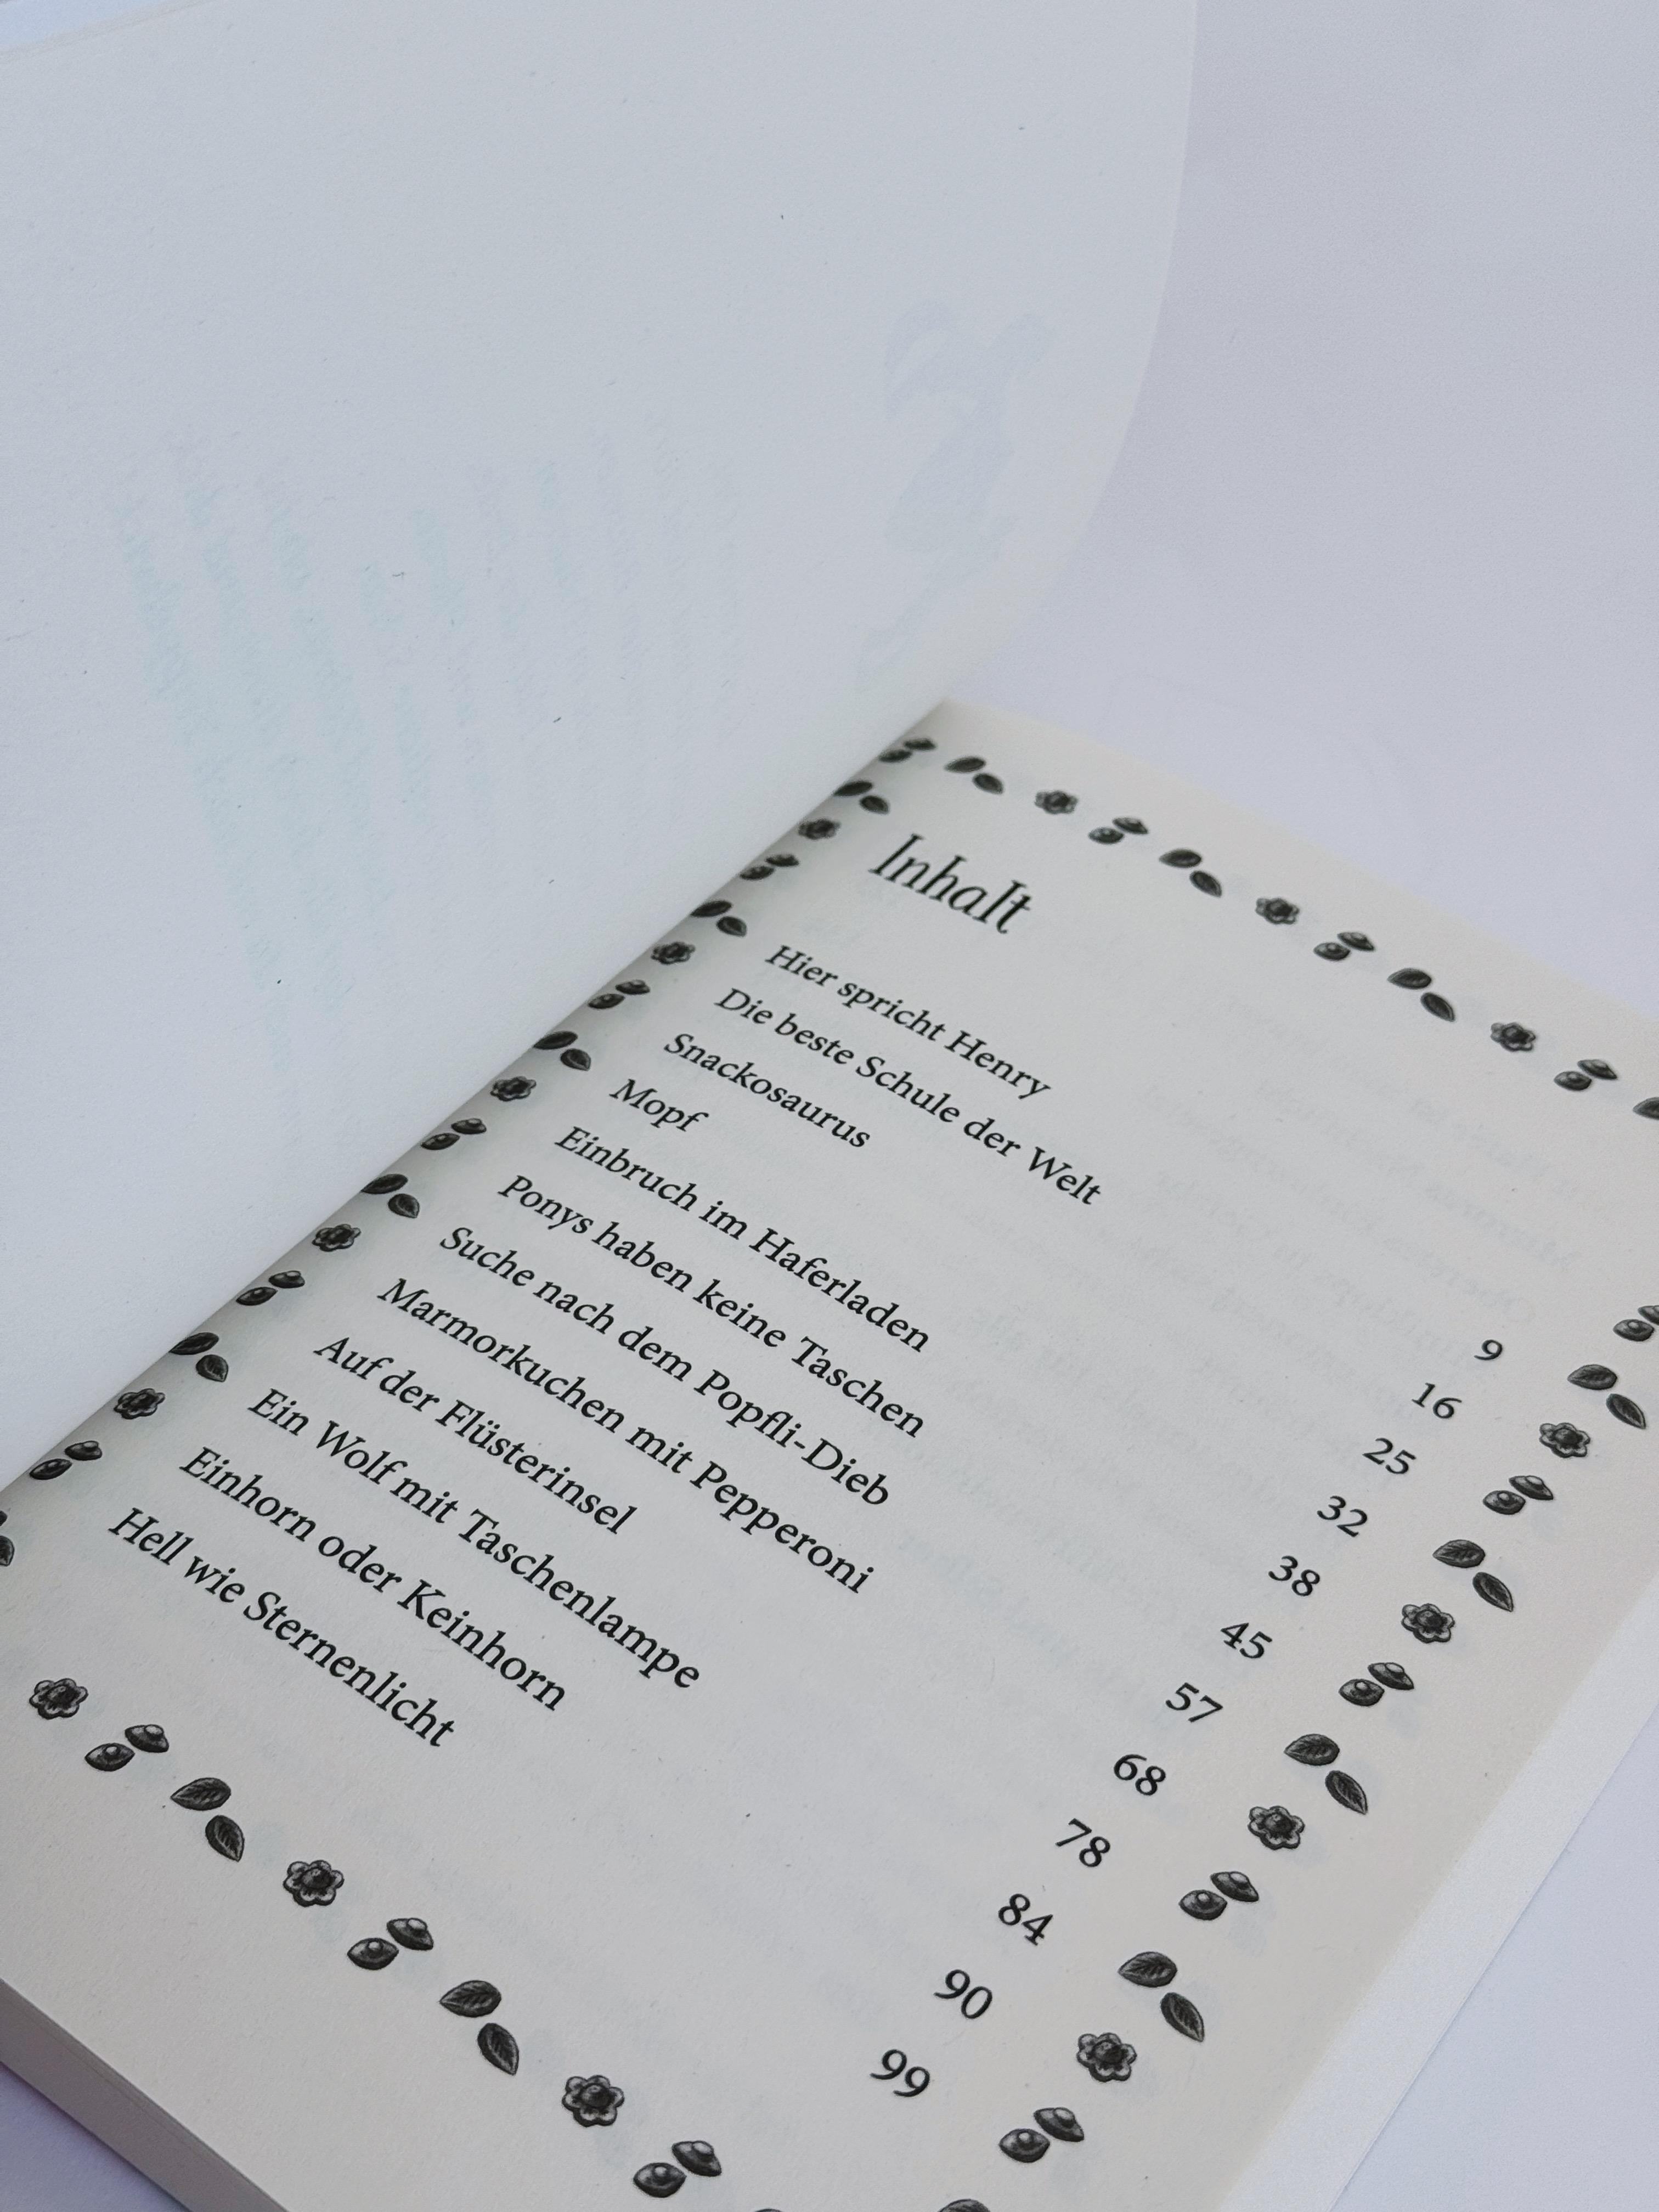 Inhalt
Hier spricht Henry 9
Die beste Schule der Welt 16
Snackosaurus 25
Mopf 32
Einbruch im Haferladen 38
Ponys haben keine Taschen 45
Suche nach dem Popfli-Dieb 57
Marmorkuchen mit Pepperoni 68
Auf der Flüsterinsel 78
Ein Wolf mit Taschenlampe 84
Einhorn oder Keinhorn 90
Hell wie Sternenlicht 99